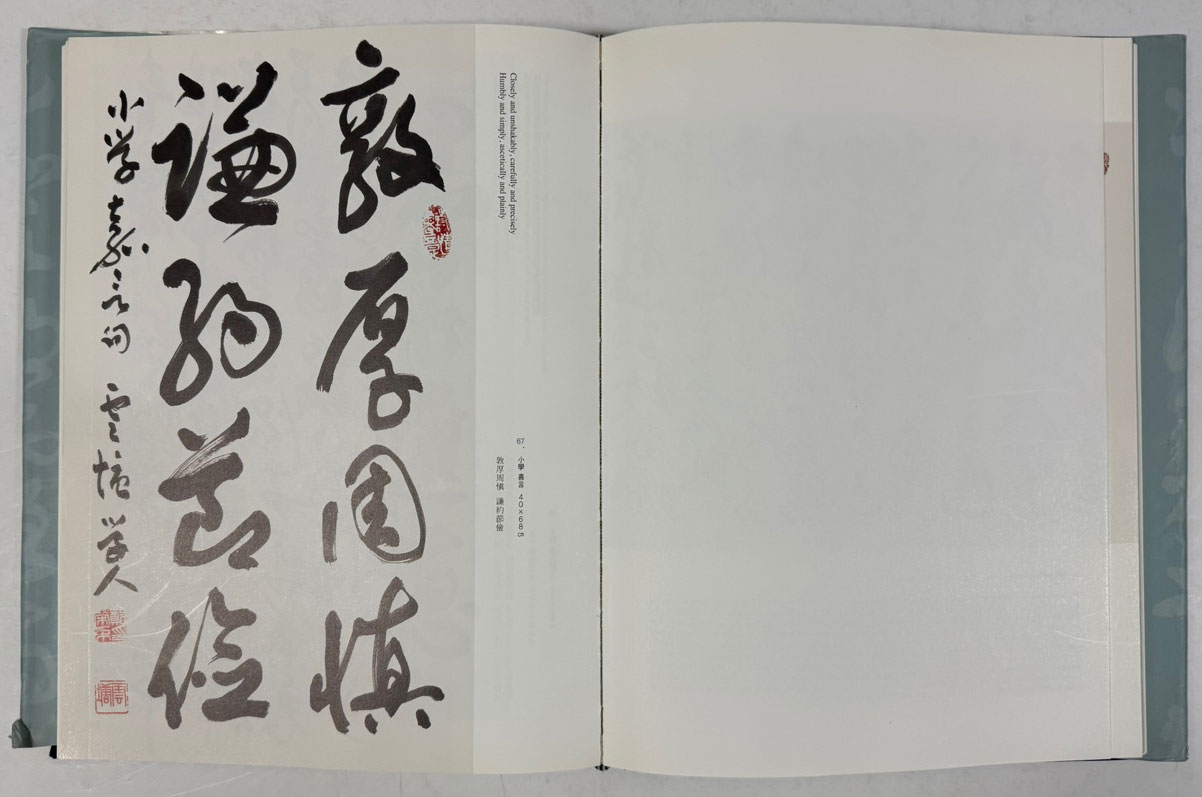 敦厚周慎
謙約節儉
小学嘉言句 雲 学人
Closely and unshakably, carefully and precisely
Humbly and simply, ascetically and plainly
67. 小學 嘉言 40×68㎝
敦厚周愼 謙約節儉